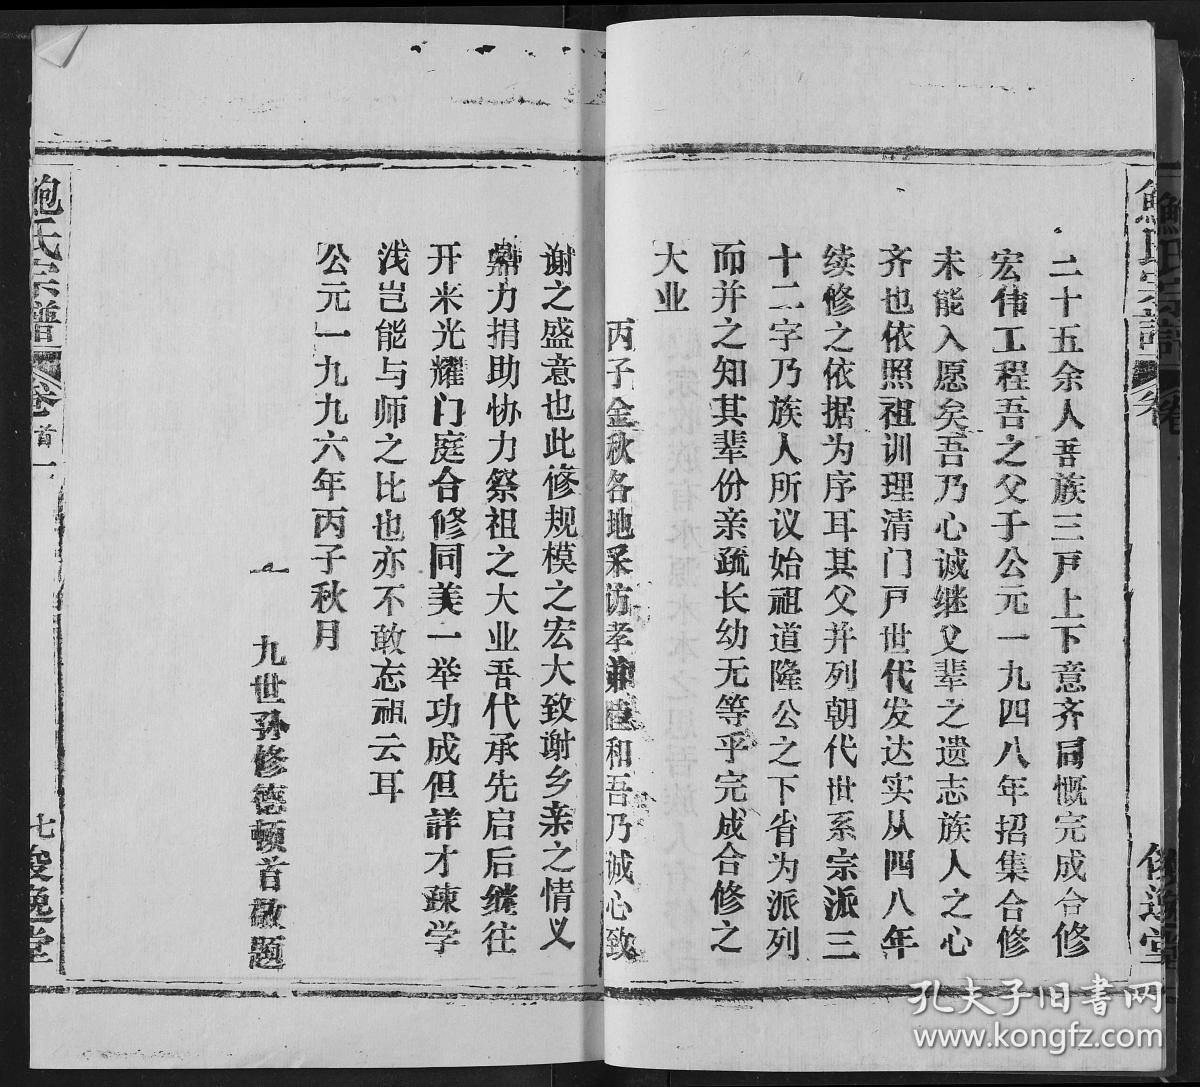 鮑氏宗譜
卷
俊逸堂
二十五余人吾族三戸上下意齐同慨完成合修
宏伟工程吾之父于公元一九四八年招集合修
未能入愿矣吾乃心诚继父辈之遗志族人之心
齐也依照祖训理清门戸世代发达实从四八年
续修之依据为序耳其父并列朝代世系宗派三
十二字乃族人所议始祖道隆公之下省为派列
而并之知其辈份亲疏长幼无等乎完成合修之
大业
丙子金秋各地采访孝和吾乃诚心致
谢之盛意也此修规模之宏大致谢乡亲之情义
鼎力捐助协力祭祖之大业吾代承先启后继往
开来光耀门庭合修同美一举功成但詳才疎学
浅岂能与师之比也亦不敢忘祖云耳
公元一九九六年丙子秋月
一九世孙修德頓首敬題
鮑氏宗譜
卷首一
七
俊逸堂
孔夫子旧書网
www.kongfz.com